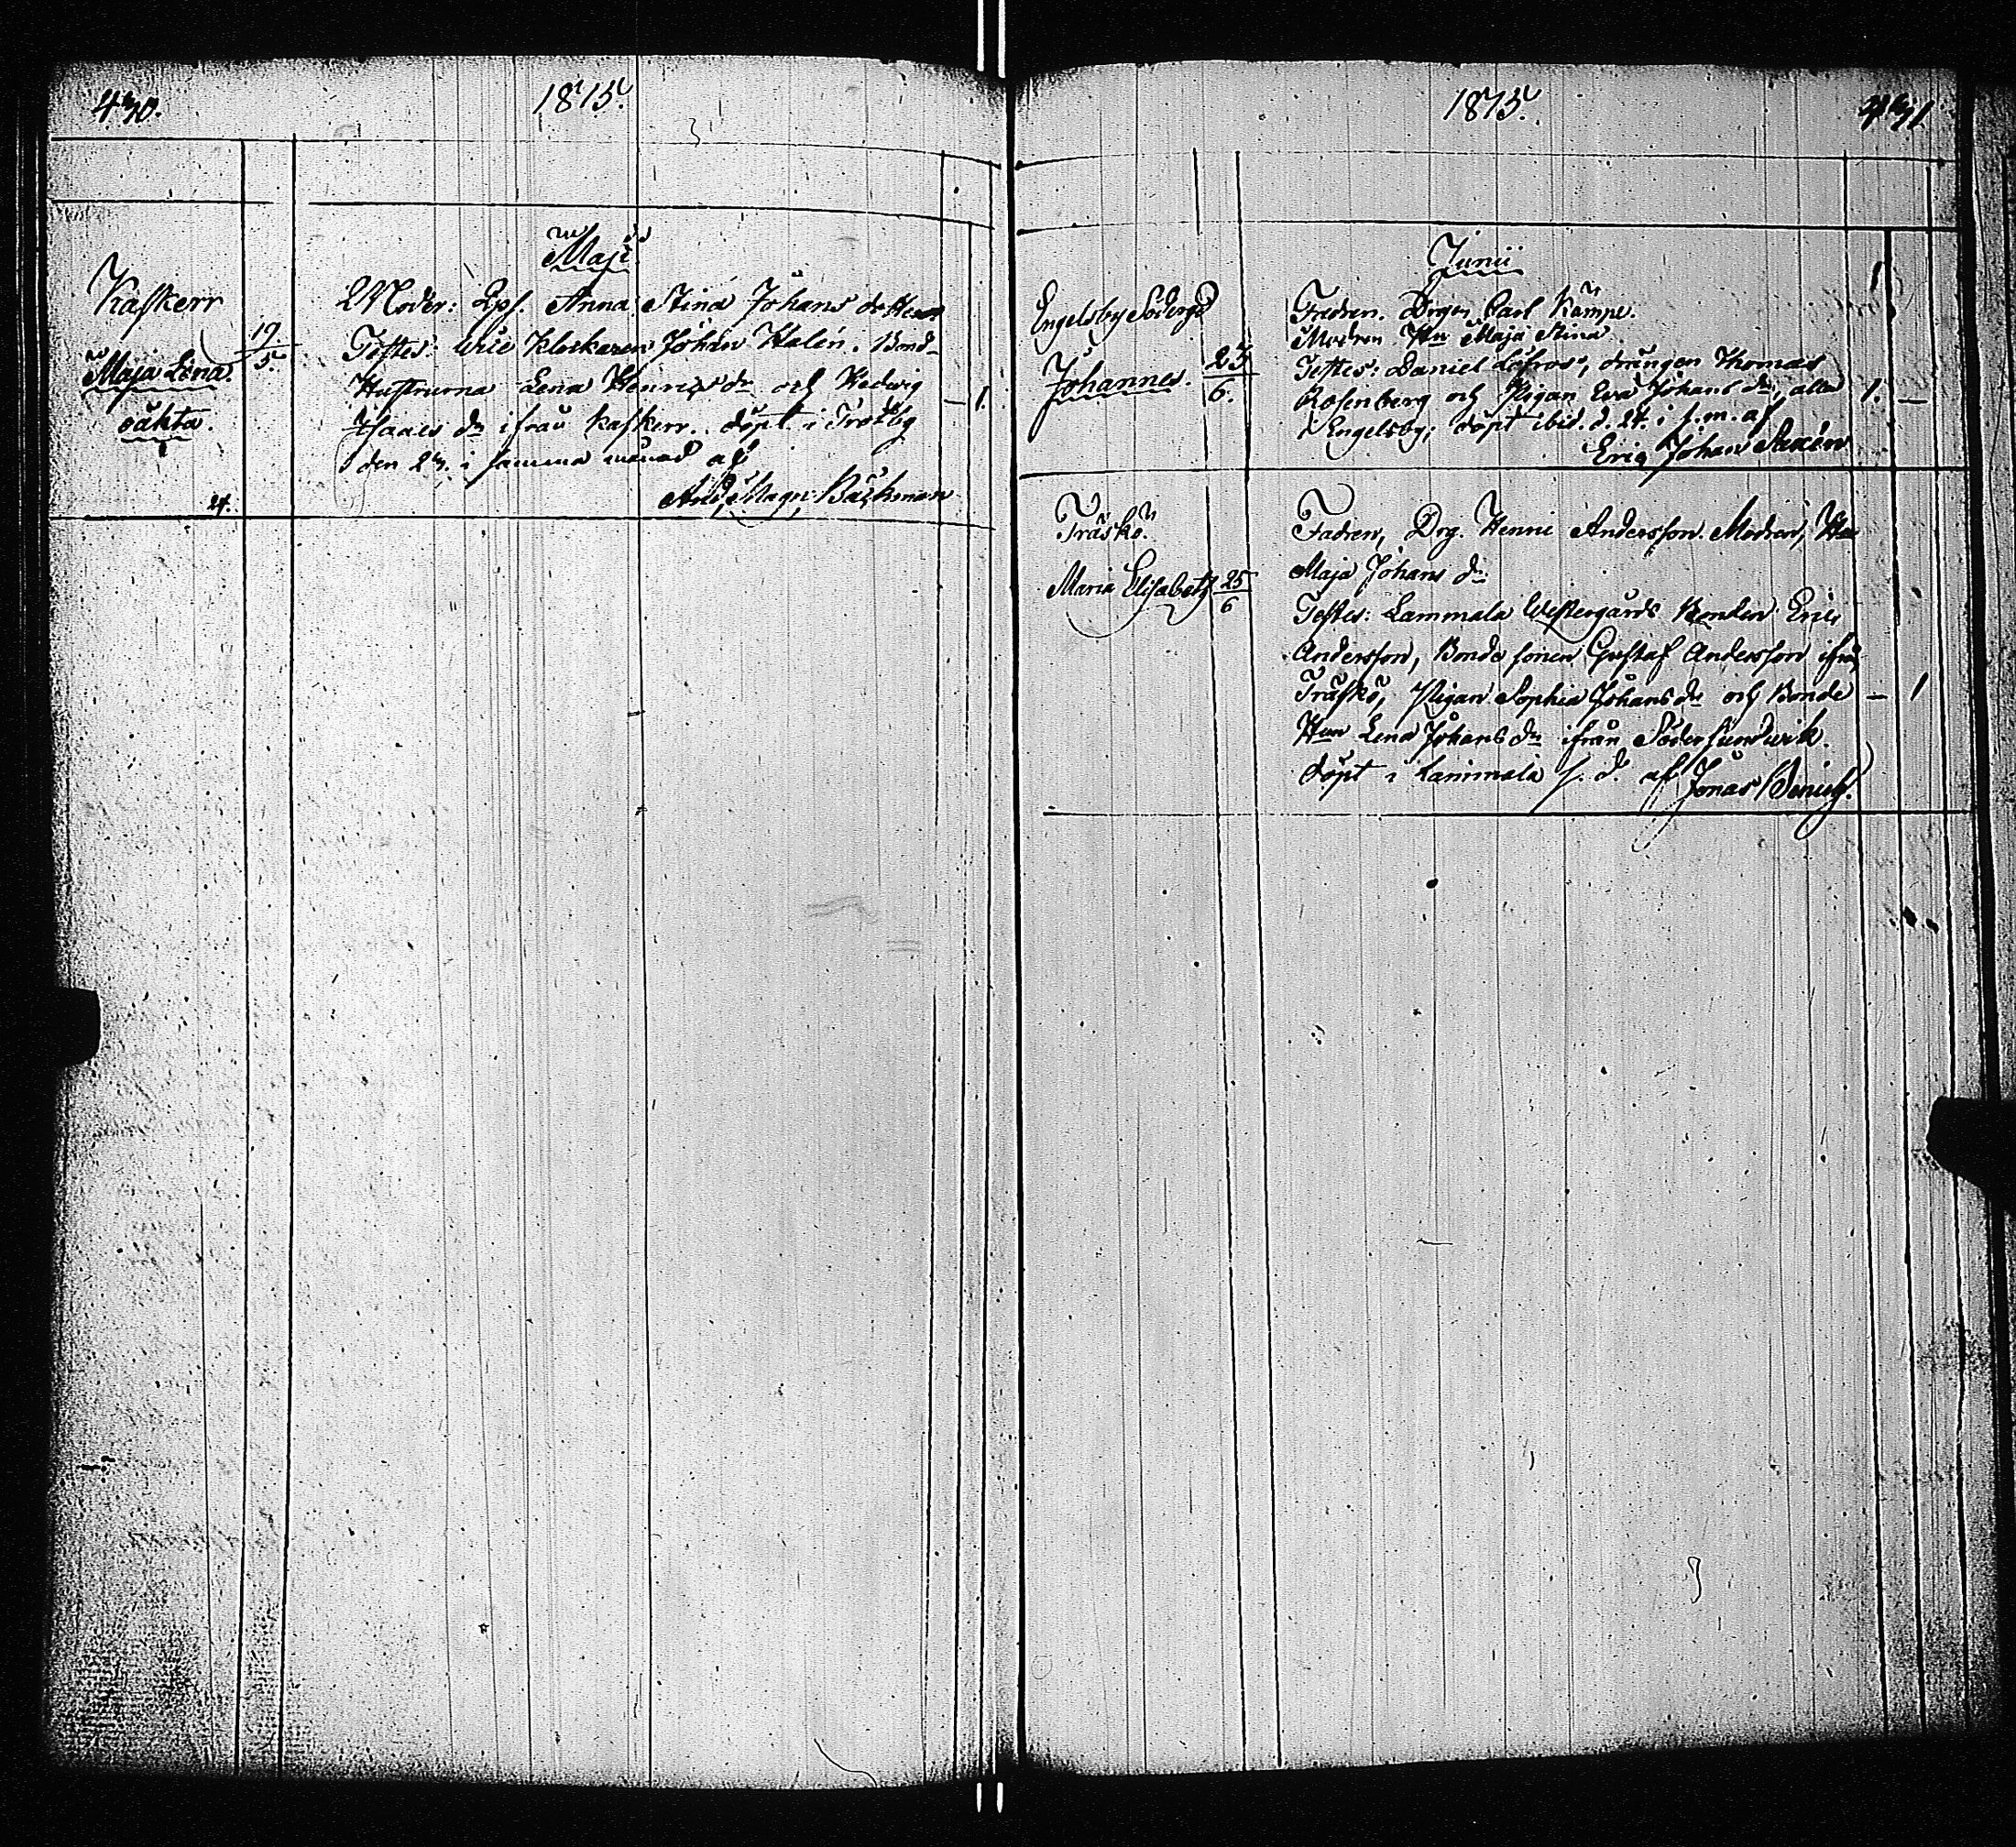 430.
1815.
Maji
Kafkerr
Maja Lena.
oäkta.
19.
5.
Moder: Lps. Anna Stina Johans dotter
Testes: Vice Klockaren Johan Halén. Bond-
Hustrurna Lena Henrics dr och Hedwig
Isaacs dr ifrån Kafkerr. döpt i Trotby
den 23. i samma månad af
And. Magn. Bäckman
24.
1.
1815.
431
Junii
Engelsby Södergd
Johannes.
23
6.
Fadren. Drgen Carl Kämpe.
Modren Hn Maja Stina
Testes: Daniel Löfroos, drängen Thomas
Rosenberg och Pigan Eva Johans dr, alla
i Engelsby; döpt ibid. d. 24. i s. m. af
Eric Johan Saxén
1. —
Träskö.
Maria Elisabeth
25
6
Fadren, Drg. Henric Andersson. Modren, Hn
Maja Johans dr
Testes: Lammala Westergårds Bonden Eric
Andersson, Bonde sonen Gustaf Andersson ifrån
Träskö, Pigan Sophia Johans dr och Bonde
Hun Lena Johans dr ifrån Södersundwik.
döpt i Lammala s. d. af Jonas
— 1